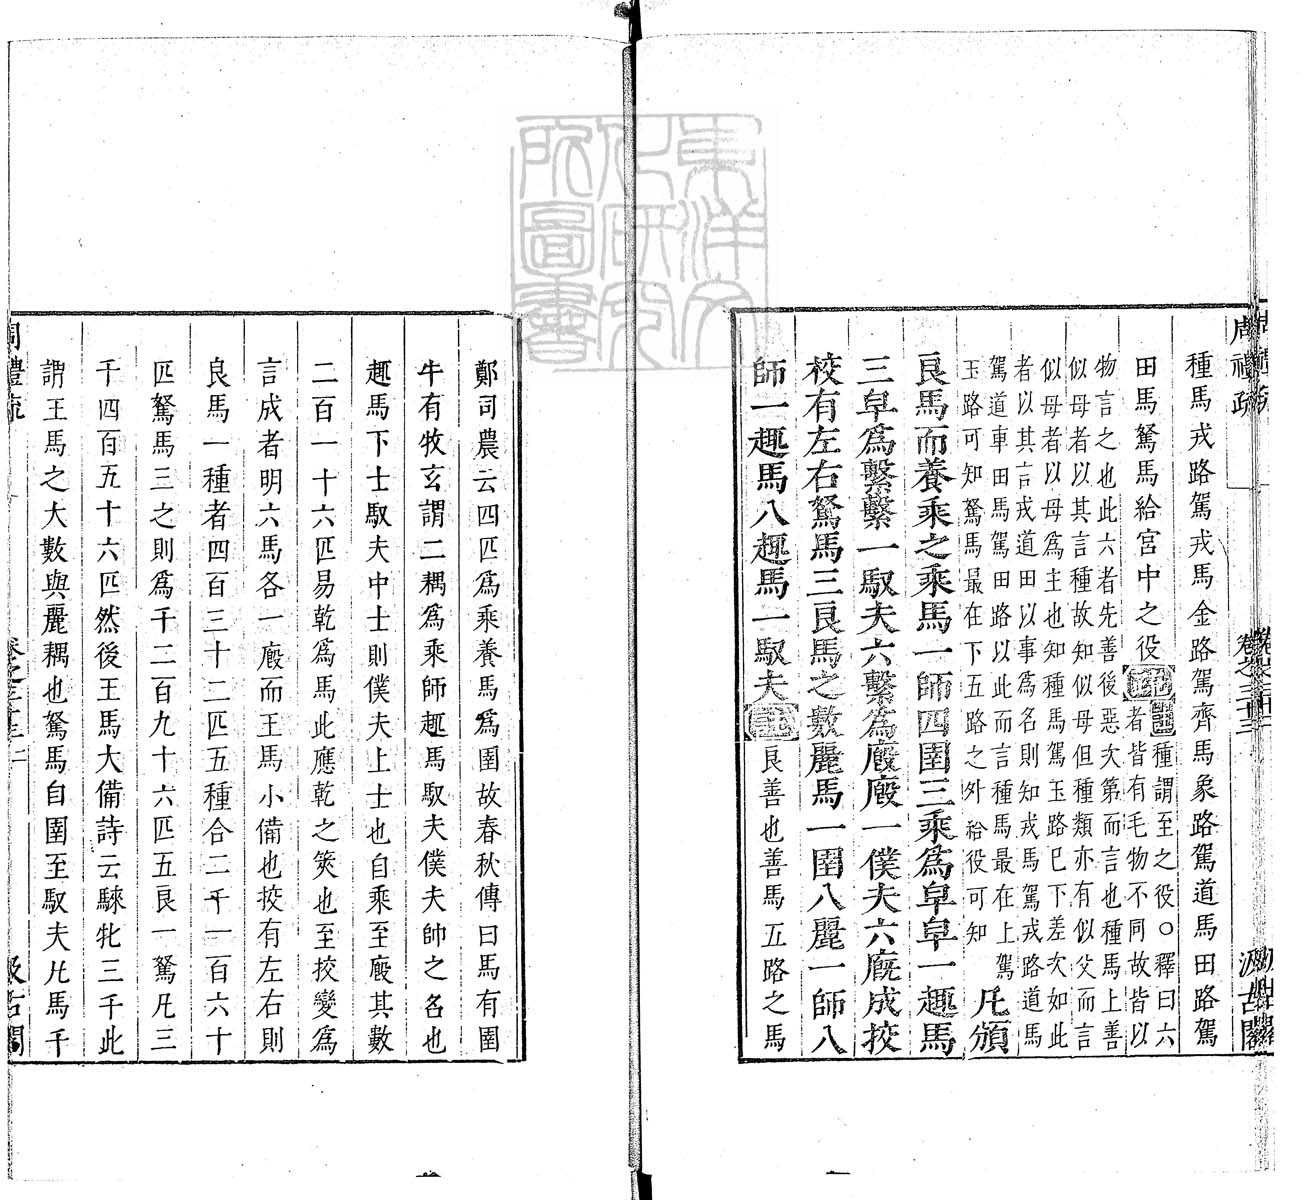 周禮疏 卷之三十三 汲古閣
種馬戎路駕戎馬金路駕齊馬象路駕道馬田路駕
田馬駑馬給宮中之役疏註種謂至之役○釋曰六
者皆有毛物不同故皆以
物言之也此六者先善後惡次第而言也種馬上善
似母者以其言種故知似母但種類亦有似父而言
似母者以母為主也知種馬駕玉路巳下差次如此
者以其言戎道田以事為名則知戎馬駕戎路道馬
駕道車田馬駕田路以此而言種馬最在上駕
玉路可知駑馬最在下五路之外給役可知
凡頒
良馬而養乘之乘馬一師四圉三乘爲皁皁一趣馬
三皁爲繫繫一馭夫六繫爲廄廄一僕夫六廄成挍
校有左右駑馬三良馬之數麗馬一圉八麗一師八
師一趣馬八趣馬一馭夫註良善也善馬五路之馬
鄭司農云四匹爲乘養馬爲圉故春秋傳曰馬有圉
牛有牧玄謂二耦爲乘師趣馬馭夫僕夫帥之名也
趣馬下士馭夫中士則僕夫上士也自乘至廄其數
二百一十六匹易乾爲馬此應乾之筴也至挍變爲
言成者明六馬各一廄而王馬小備也挍有左右則
良馬一種者四百三十二匹五種合二千一百六十
匹駑馬三之則爲千二百九十六匹五良一駑凡三
千四百五十六匹然後王馬大備詩云騋牝三千此
謂王馬之大數與麗耦也駑馬自圉至馭夫凡馬千
周禮疏 卷之三十三 二 汲古閣
東洋文化研究所圖書